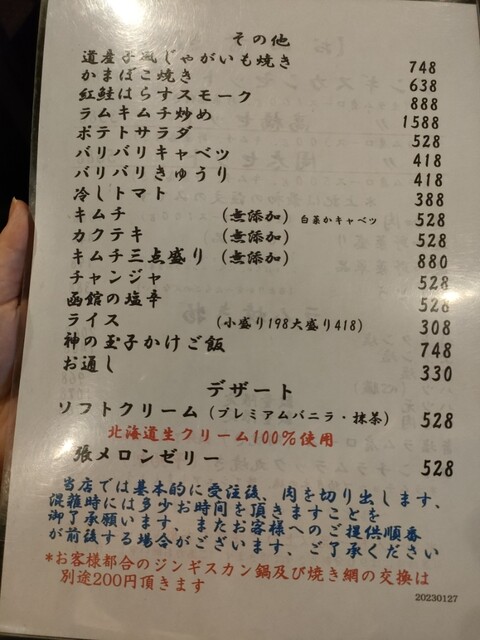 その他
道産子風じゃがいも焼き 748
かまぼこ焼き 638
紅鮭はらすスモーク 888
ラムキムチ炒め 1588
ポテトサラダ 528
バリバリキャベツ 418
バリバリきゅうり 418
冷しトマト 388
キムチ (無添加) 白菜かキャベツ 528
カクテキ (無添加) 528
キムチ三点盛り (無添加) 880
チャンジャ 528
函館の塩辛 528
ライス (小盛り198大盛り418) 308
神の玉子かけご飯 748
お通し 330
デザート
ソフトクリーム (プレミアムバニラ・抹茶) 528
北海道生クリーム100%使用
張メロンゼリー 528
当店では基本的に受注後、肉を切り出します、
混雑時には多少お時間を頂きますことを
御了承願います、またお客様へのご提供順番
が前後する場合がございます、ご了承ください
*お客様都合のジンギスカン鍋及び焼き網の交換は
別途200円頂きます
20230127